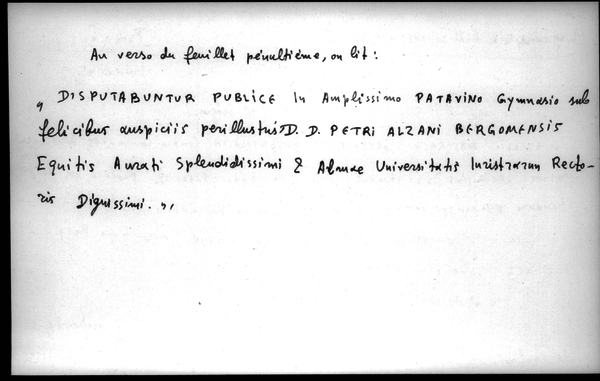 Au verso du feuillet pénultième, on lit :
„ DISPUTABUNTUR PUBLICE In Amplissimo PATAVINO Gymnasio sub
felicibus auspiciis perillustris D. D. PETRI ALZANI BERGOMENSIS
Equitis Aurati Splendidissimi & Almae Universitatis Iuristarum Recto-
ris Dignissimi. „,